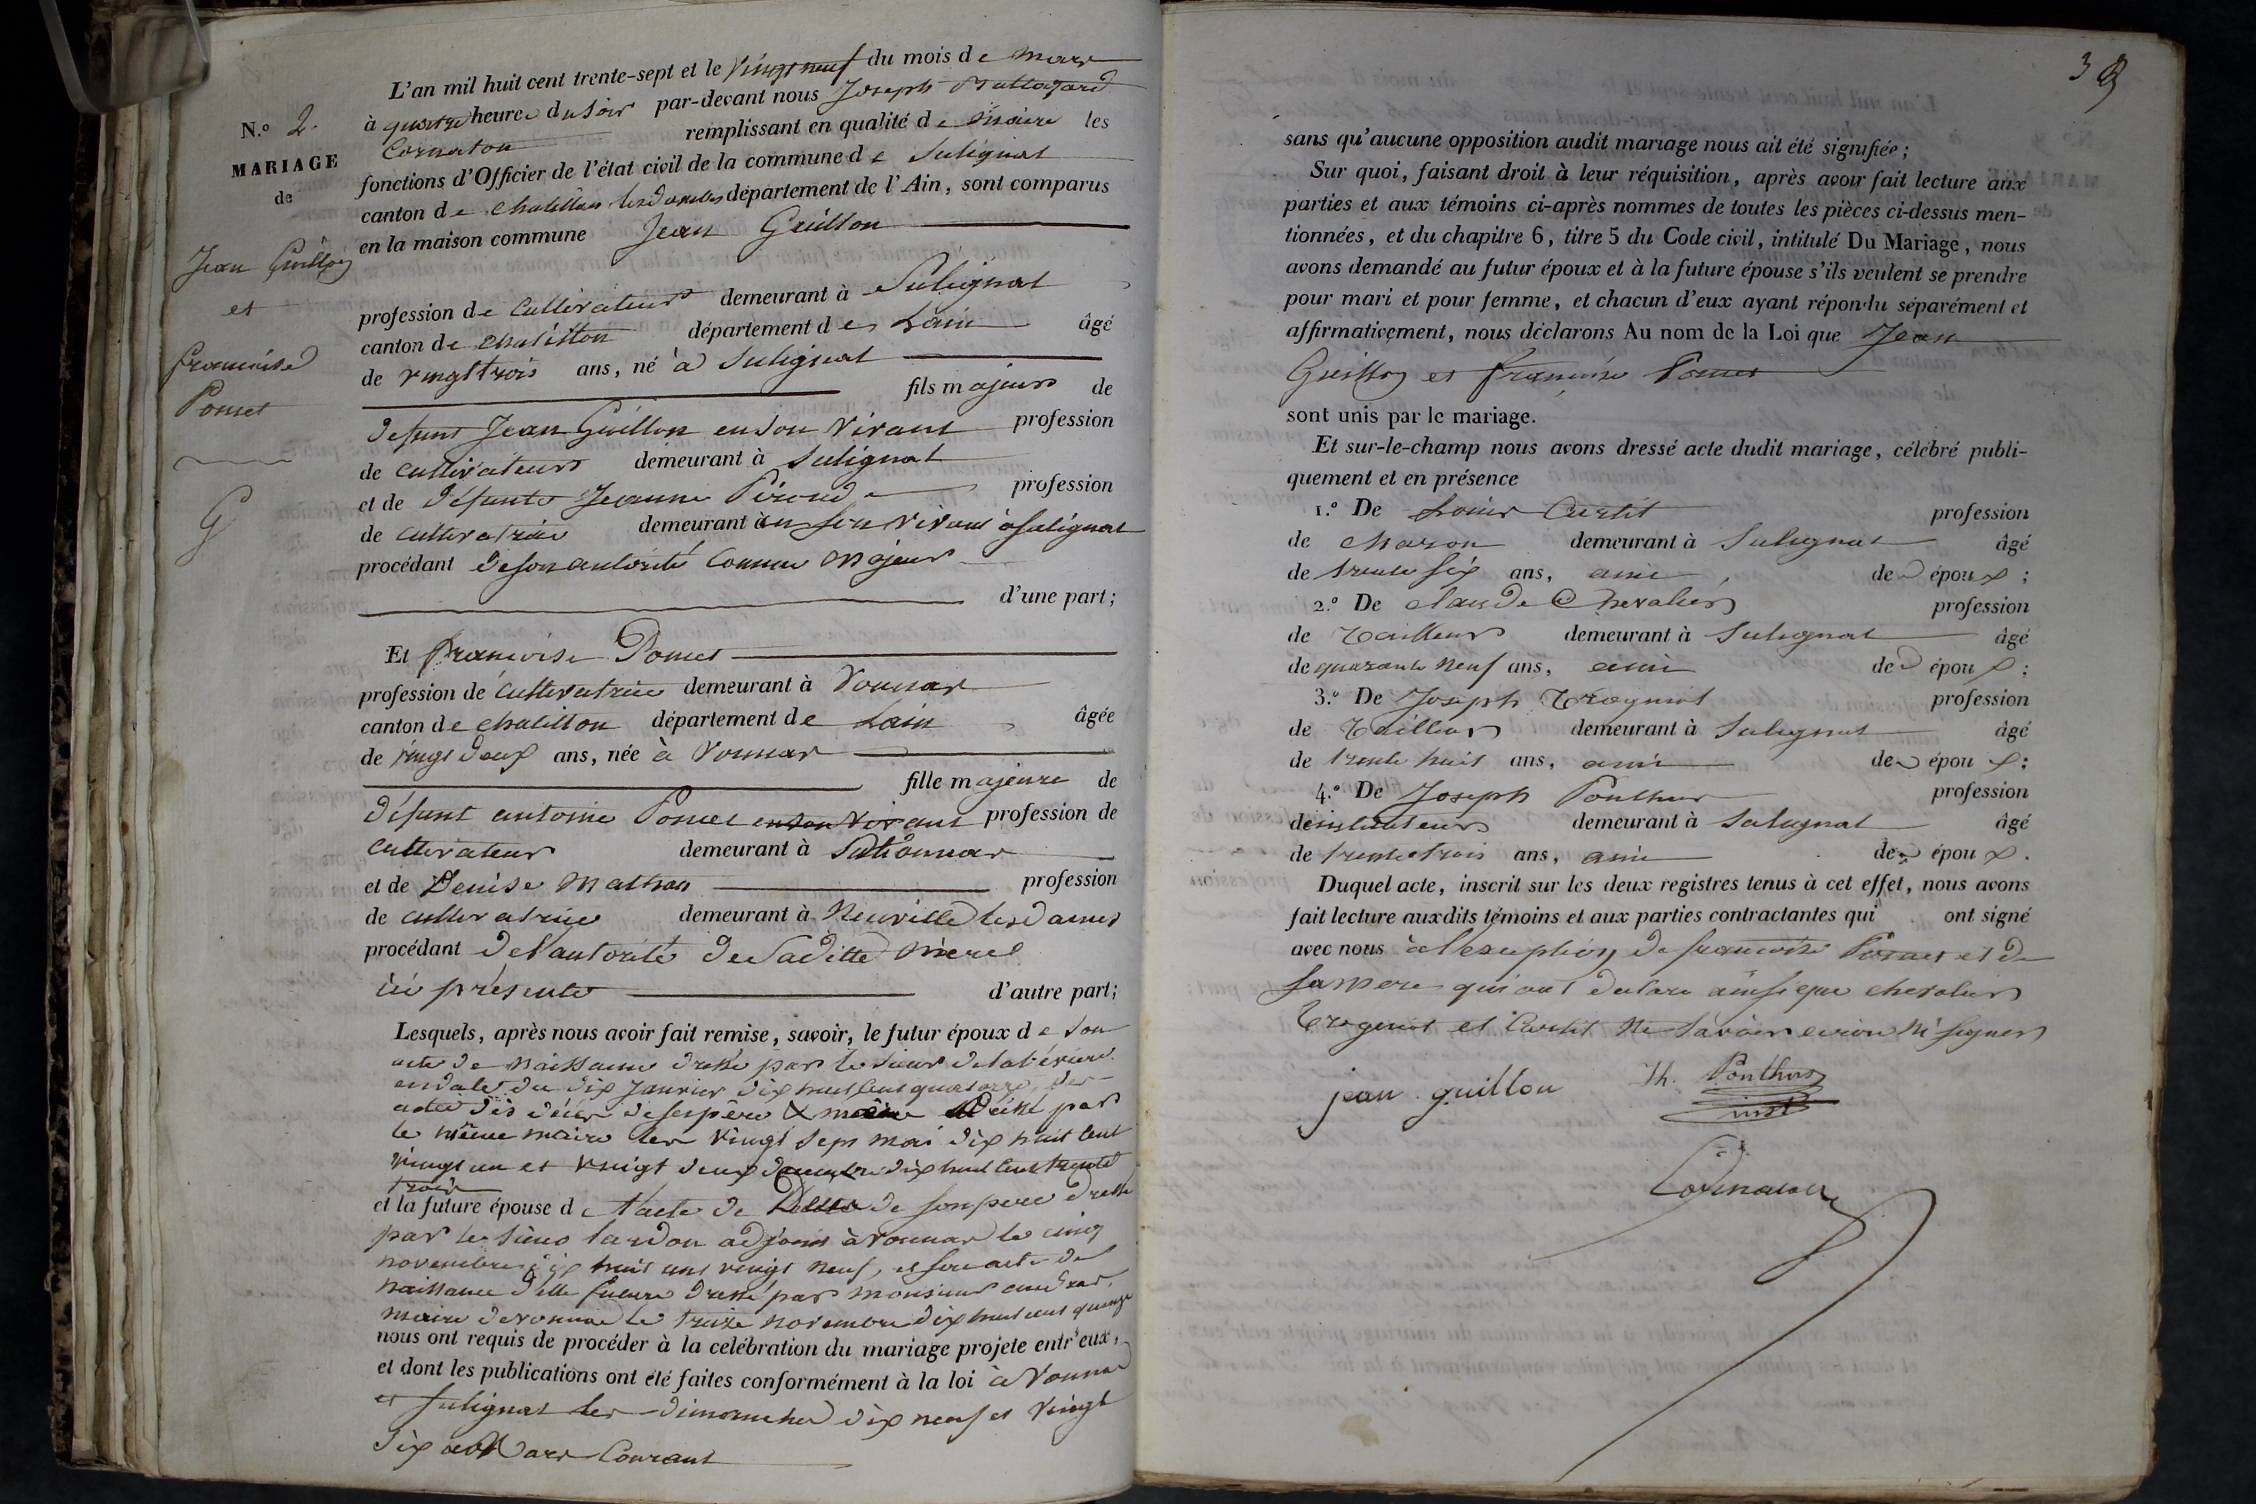 N.o 2.
MARIAGE
de
Jean Guillon
et
francoise
Poncet
G
L'an mil huit cent trente-sept et le vingt neuf du mois de mars
à quatre heure du soir par-devant nous Joseph
Cornaton remplissant en qualité de maire les
fonctions d'Officier de l'état civil de la commune de Sulignat
canton de chatillon les dombes département de l'Ain, sont comparus
en la maison commune Jean Guillon
profession de cultivateur demeurant à Sulignat
canton de chatillon département de Lain âgé
de vingt trois ans, né à Sulignat
fils majeur de
defunt Jean Guillon en son vivant profession
de cultivateur demeurant à Sulignat
et de défunte Jeanne profession
de cultivatrice demeurant en son vivant à Sulignat
procédant de son autorité comme majeur
d'une part;
Et francoise Poncet
profession de cultivatrice demeurant à Vonnas
canton de chatillon département de Lain âgée
de vingt deux ans, née à Vonnas
fille majeure de
défunt antoine Poncet en son vivant profession de
cultivateur demeurant à Vonnas
et de Denise profession
de cultivatrice demeurant à Neuville les dames
procédant de l'autorité de Sa ditte mere
ici présente d'autre part;
Lesquels, après nous avoir fait remise, savoir, le futur époux de son
acte de naissance dressé par le sieur
en date du dix Janvier dix huit cent quatorze, des
actes des décès de ses père & mère par
le même maire les vingt sept mai dix huit cent
vingt un et vingt deux dix huit cent trente
trois
et la future épouse de l'acte de de son pere dressé
par le sieur adjoint à vonnas le cinq
novembre dix huit cent vingt neuf, et son acte de
naissance d'elle future dressé par monsieur
maire de vonnas le treize novembre dix huit cent quinze
nous ont requis de procéder à la celébration du mariage projete entr'eux,
et dont les publications ont été faites conformément à la loi à Vonnas
et Sulignat les dimanches dix neuf et vingt
Six Mars Courant
38
sans qu'aucune opposition audit mariage nous ait été signifiée;
Sur quoi, faisant droit à leur réquisition, après avoir fait lecture aux
parties et aux témoins ci-après nommes de toutes les pièces ci-dessus men-
tionnées, et du chapitre 6, titre 5 du Code civil, intitulé Du Mariage, nous
avons demandé au futur époux et à la future épouse s'ils veulent se prendre
pour mari et pour femme, et chacun d'eux ayant répondu séparément et
affirmativement, nous déclarons Au nom de la Loi que Jean
Guillon et francoise Poncet
sont unis par le mariage.
Et sur-le-champ nous avons dressé acte dudit mariage, célébré publi-
quement et en présence
1.o De Louis Curtit profession
de charon demeurant à Sulignat âgé
de trente six ans, ami de époux;
2.o De claude Chevalier profession
de tailleur demeurant à Sulignat âgé
de quarante neuf ans, ami de époux;
3.o De Joseph profession
de tailleur demeurant à Sulignat âgé
de trente huit ans, ami de époux;
4.o De Joseph Ponthus profession
d'instituteur demeurant à Sulignat âgé
de trente trois ans, ami de époux.
Duquel acte, inscrit sur les deux registres tenus à cet effet, nous avons
fait lecture auxdits témoins et aux parties contractantes qui ont signé
avec nous à l'exception de francoise Poncet et de
sa mere qui ont declaré ainsi que chevalier
et Curtit ne savoir ecrire ni signer
jean guillon Jh. Ponthus
inst
Cornaton